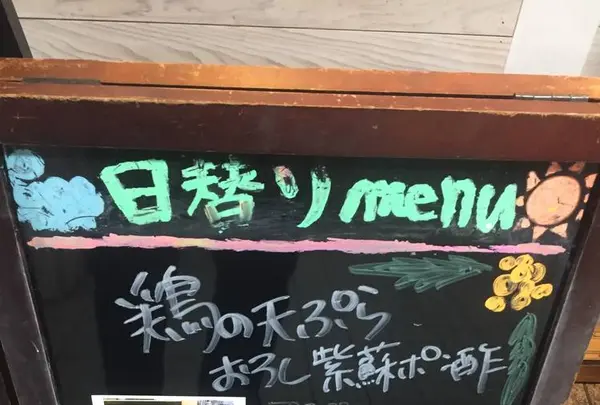 日替りmenu
鶏の天ぷら
おろし紫蘇ポン酢